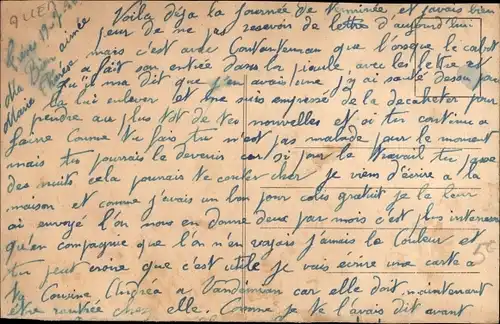 Ma Bien aimée
Marie Thérèse
Voila déja la journée de terminée et j'avais bien
peur de ne pas resevoir de lettre d'aujourd'hui
mais c'est avec contentement que l'orsque le cabot
a fait son entrée dans la piaule avec les lettre et
qu'il m'a dit que j'en avais une j'y ai sauté desou pour
la lui enlever et me suis empressé de la decacheter pour
prendre au plus tot de tes nouvelles et si tu continue a
faire comme tu fais tu n'est pas malade pour le moment
mais tu pourrais le devenir car si pour le travail tu passe
des nuits cela pourrait te couter cher je viens d'écrire a la
maison et comme j'avais un bon pour colis gratuit je le leur
ai envoyé l'on nous en donne deux par mois c'est plus interessant
qu'en compagnie que l'on n'en voyais jamais la couleur et
tu peut croire que c'est utile je vais ecrire une carte a
ta cousine Andrea a Vandenesse car elle doit maintenant
être rentrée chez elle. Comme je te l'avais dit avant
5€